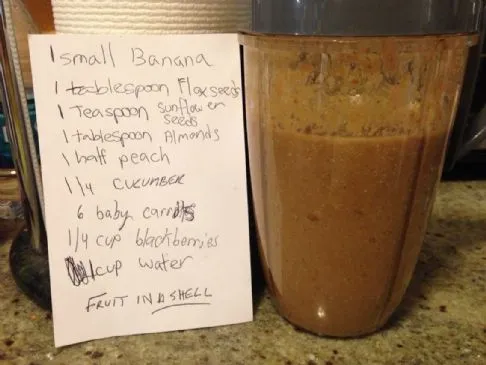 1 small Banana
1 tablespoon Flaxseeds
1 Teaspoon sunflower
seeds
1 tablespoon Almonds
1 half peach
1/4 CUCUMBER
6 baby carrots
1/4 cup blackberries
1 cup water
FRUIT IN A SHELL